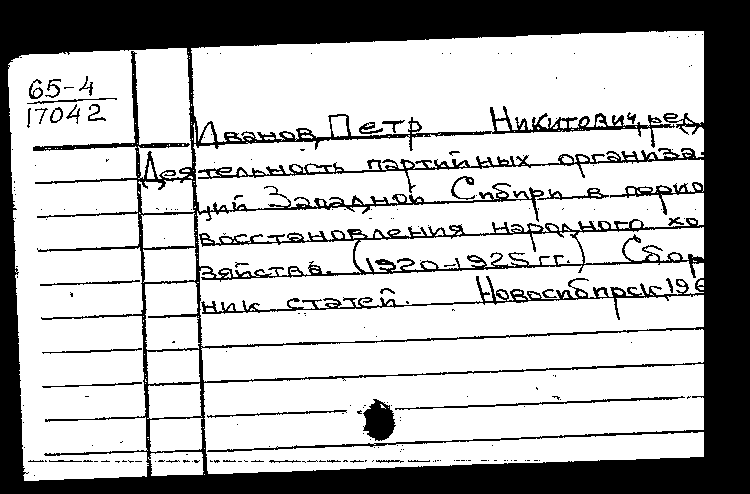 65-4
17042
Иванов, Петр Никитович, ред.
Деятельность партийных организа-
ций Западной Сибири в перио
восстановления народного хо
зяйства. (1920-1925 гг.) Сбор
ник статей. Новосибирск, 196